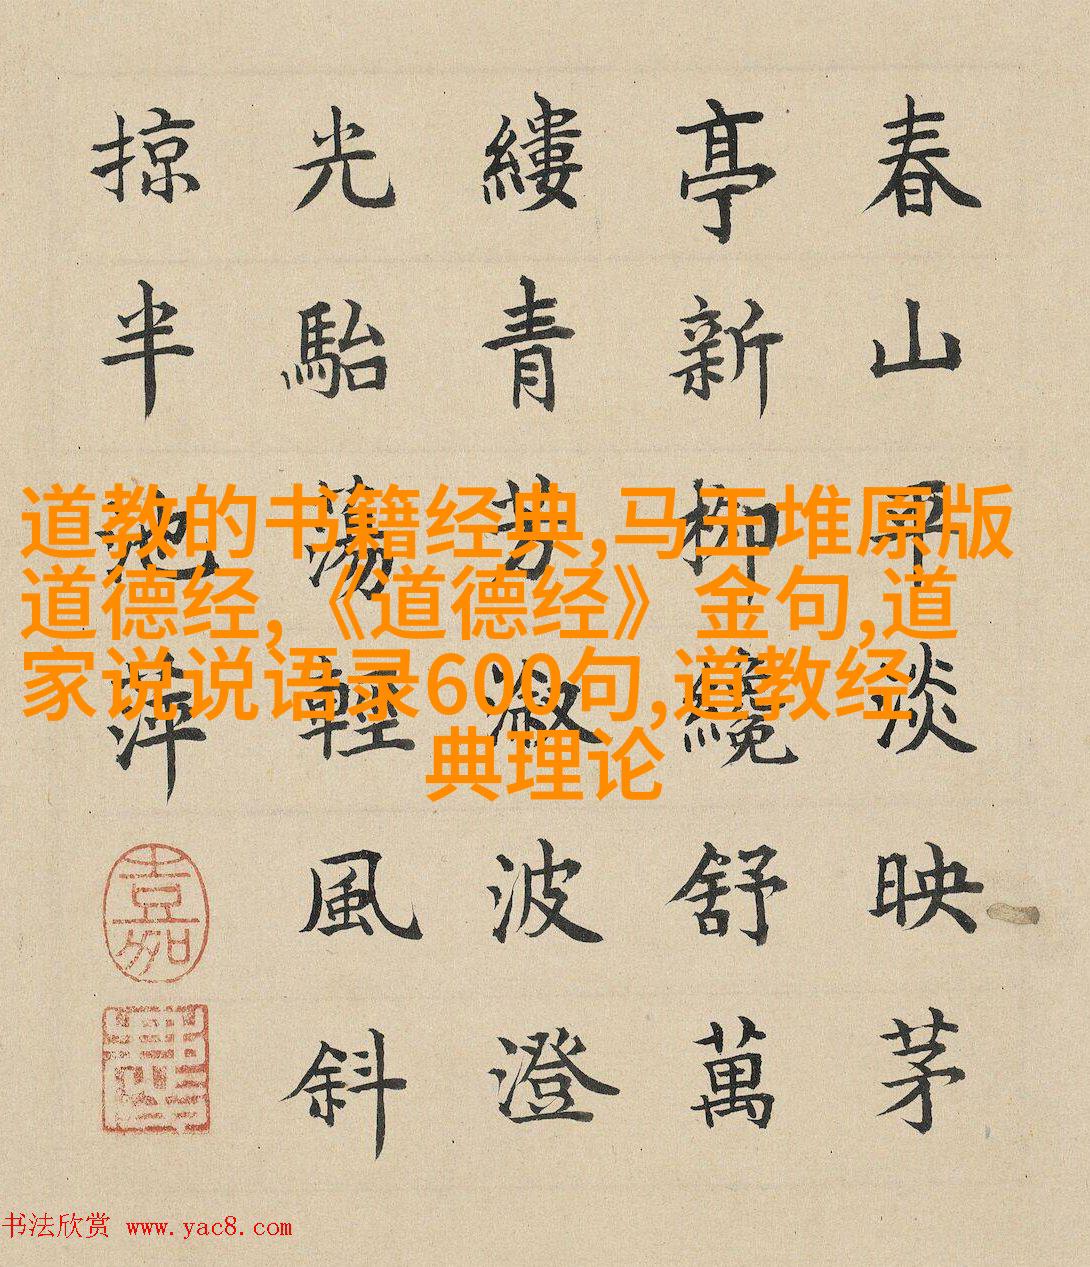 春山早淡映茅
亭新柳纔舒萬
縷青芳溆波澄
光駘蕩輕風斜
掠半池萍
嘉
道教的书籍经典,马王堆原版
道德经,《道德经》金句,道
家说说语录600句,道教经
典理论
书法欣赏 www.yac8.com